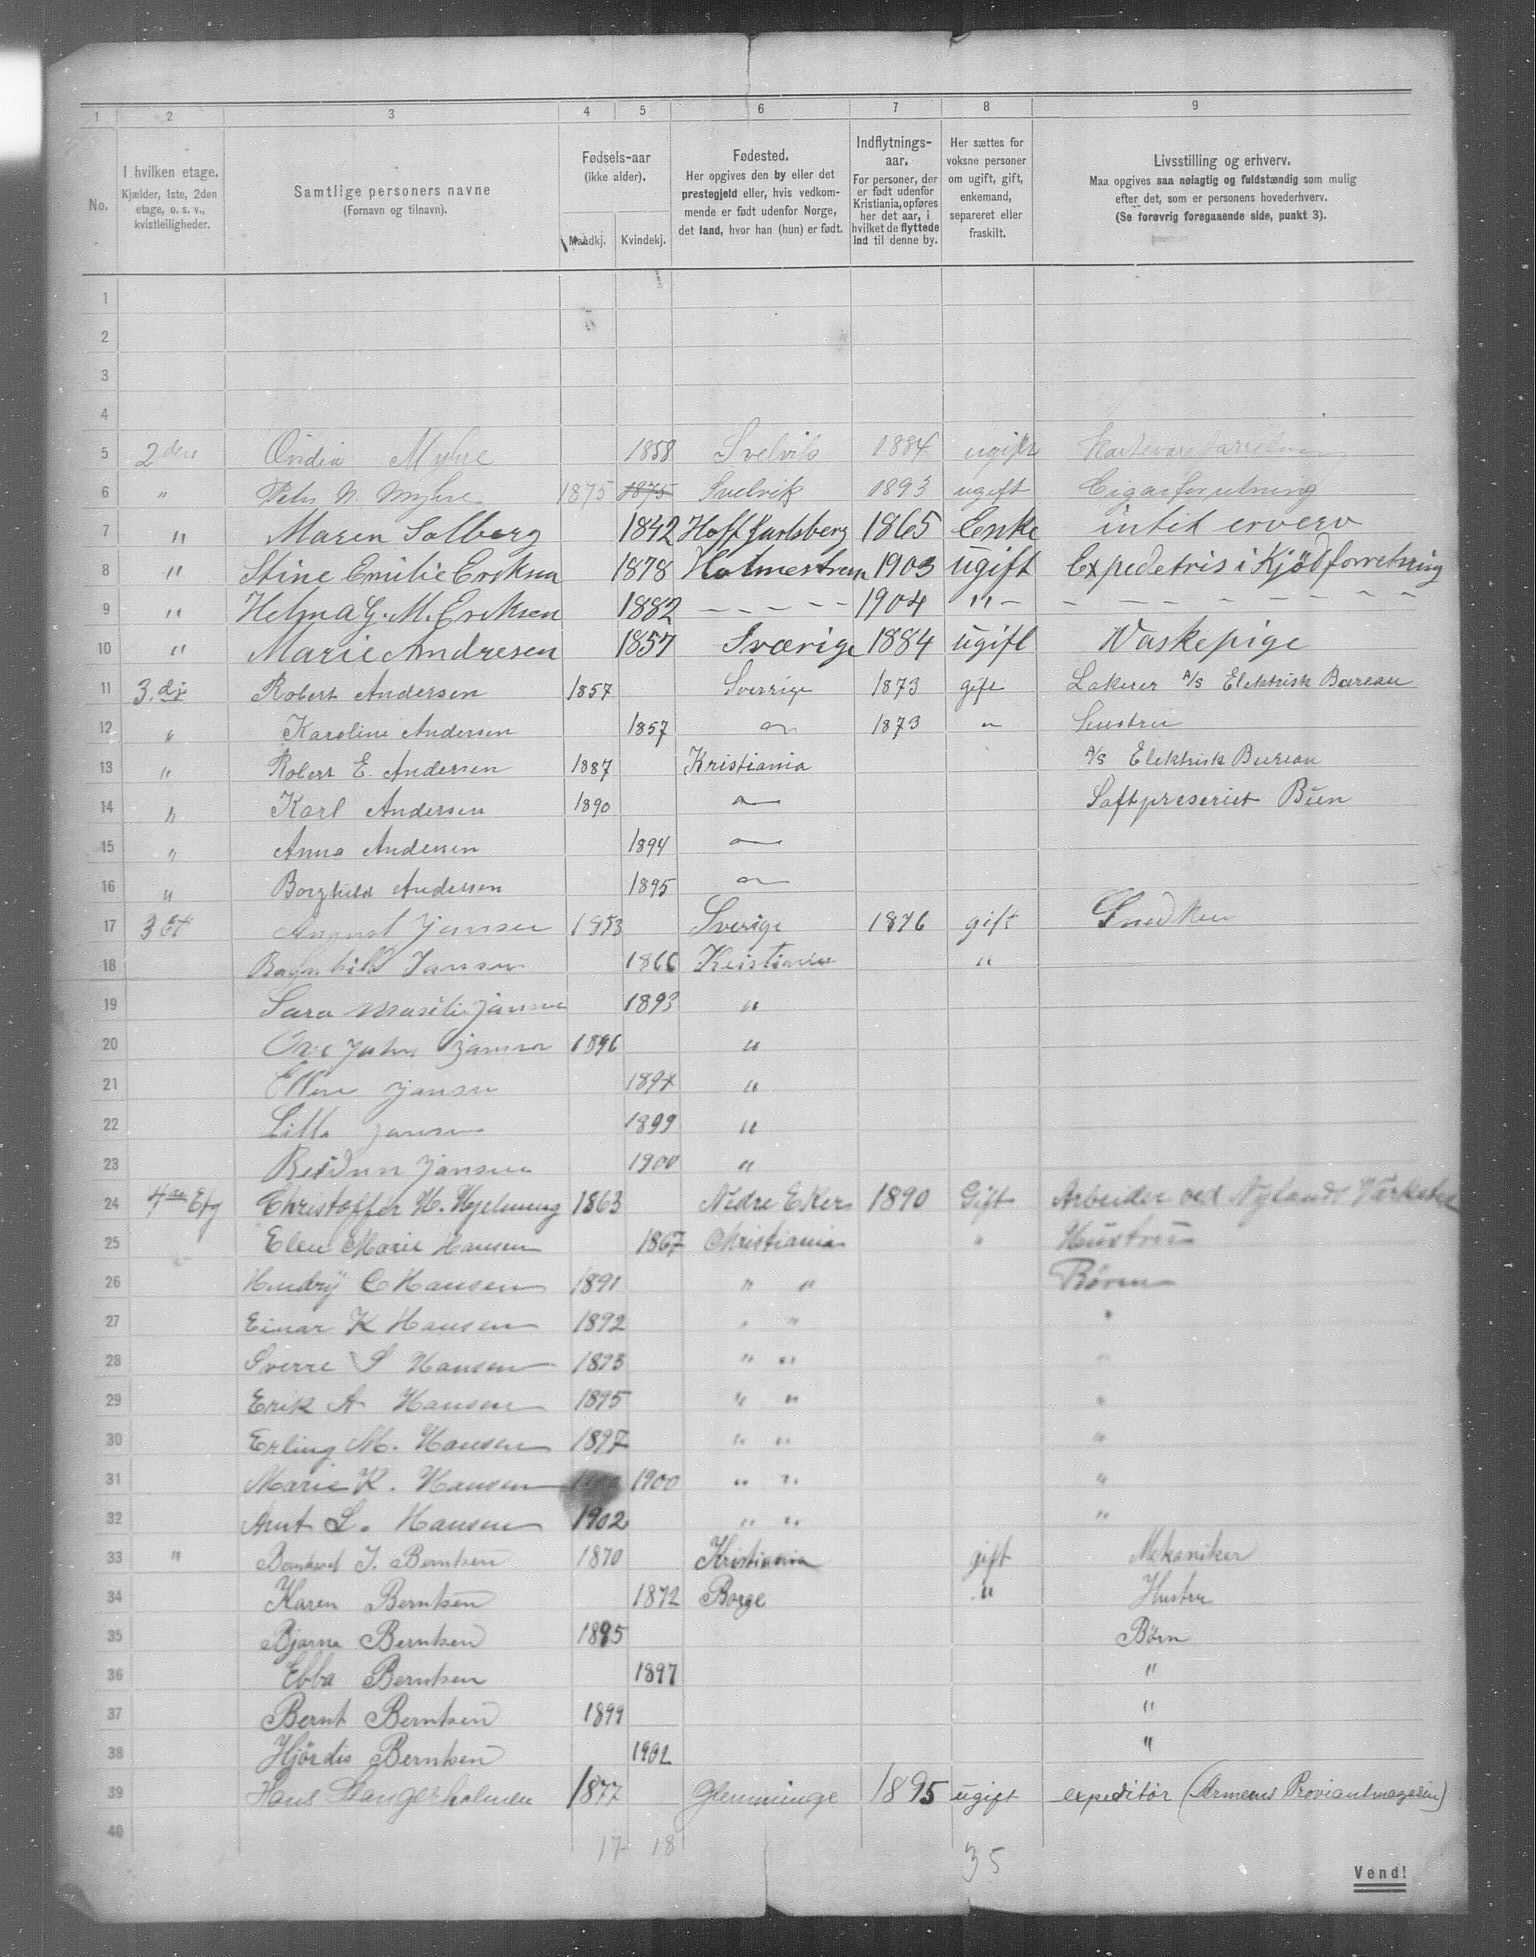 1 2 3 4 5 6 7 8 9
No.
I hvilken etage.
Kjælder, 1ste, 2den
etage, o. s. v.,
kvistleiligheder.
Samtlige personers navne
(Fornavn og tilnavn).
Fødsels-aar
(ikke alder).
Mandkj. Kvindekj.
Fødested.
Her opgives den by eller det
prestegjeld eller, hvis vedkom-
mende er født udenfor Norge,
det land, hvor han (hun) er født.
Indflytnings-
aar.
For personer, der
er født udenfor
Kristiania, opføres
her det aar, i
hvilket de flyttede
ind til denne by.
Her sættes for
voksne personer
om ugift, gift,
enkemand,
separeret eller
fraskilt.
Livsstilling og erhverv.
Maa opgives saa nøiagtig og fuldstændig som mulig
efter det, som er personens hovederhverv.
(Se forøvrig foregaaende side, punkt 3).
1
2
3
4
5 2den Ovidia Myhre 1858 Svelvik 1884 ugift
6 " Petr N. Myhre 1875 1875 Svelvik 1893 ugift Cigarforretning
7 " Maren Solberg 1842 Hoff Jarlsberg 1865 Enke intit erverv
8 " Stine Emilie Eriksen 1878 Holmestran 1903 ugift Expedetris i Kjödforretning
9 " Helma G. M. Eriksen 1882 - - - - - 1904 " - - - - - - - - -
10 " Marie Andresen 1857 Sværige 1884 ugift Vaskepige
11 3. Robert Andersen 1857 Sverrige 1873 gift Lakerer A/S Elektrisk Bureau
12 " Karoline Andersen 1857 " 1873 "
13 " Robert E. Andersen 1887 Kristiania A/S Elektrisk Bureau
14 " Karl Andersen 1890 " Saftpreseriet Bien
15 " Anna Andersen 1894 "
16 " Borghild Andersen 1895 "
17 3 Et August Jansen 1853 Sverige 1876 gift Snedker
18 Ragnhild Jansen 1866 Kristiania "
19 Sara Jansen 1893 "
20 John Jansen 1896 "
21 Ellen Jansen 1897 "
22 Lilla Jansen 1899 "
23 Reidun Jansen 1900 "
24 4de Etg Christoffer H. 1863 Nedre Eker 1890 Gift Arbeider ved Nylands Værksted
25 " Elen Marie Hansen 1867 Christiania " Hustru
26 Hendry C Hansen 1891 " " Børen
27 Einar K Hansen 1892 " " "
28 Sverre S Hansen 1893 " " "
29 Erik A Hansen 1895 " " "
30 Erling M. Hansen 1897 " " "
31 Marie K. Hansen 1900 " " "
32 Arnt L. Hansen 1902 " " "
33 " J. Berntsen 1870 Kristiania gift Mekaniker
34 Karen Berntsen 1872 Borge " Hustru
35 Bjarne Berntsen 1895 Börn
36 Ebba Berntsen 1897 "
37 Bernt Berntsen 1899 "
38 Hjördis Berntsen 1902 "
39 Hans Stangerholmen 1877 Glemminge 1895 ugift expeditör (Armeens Proviantmagasin)
40
17 18 35
Vend!